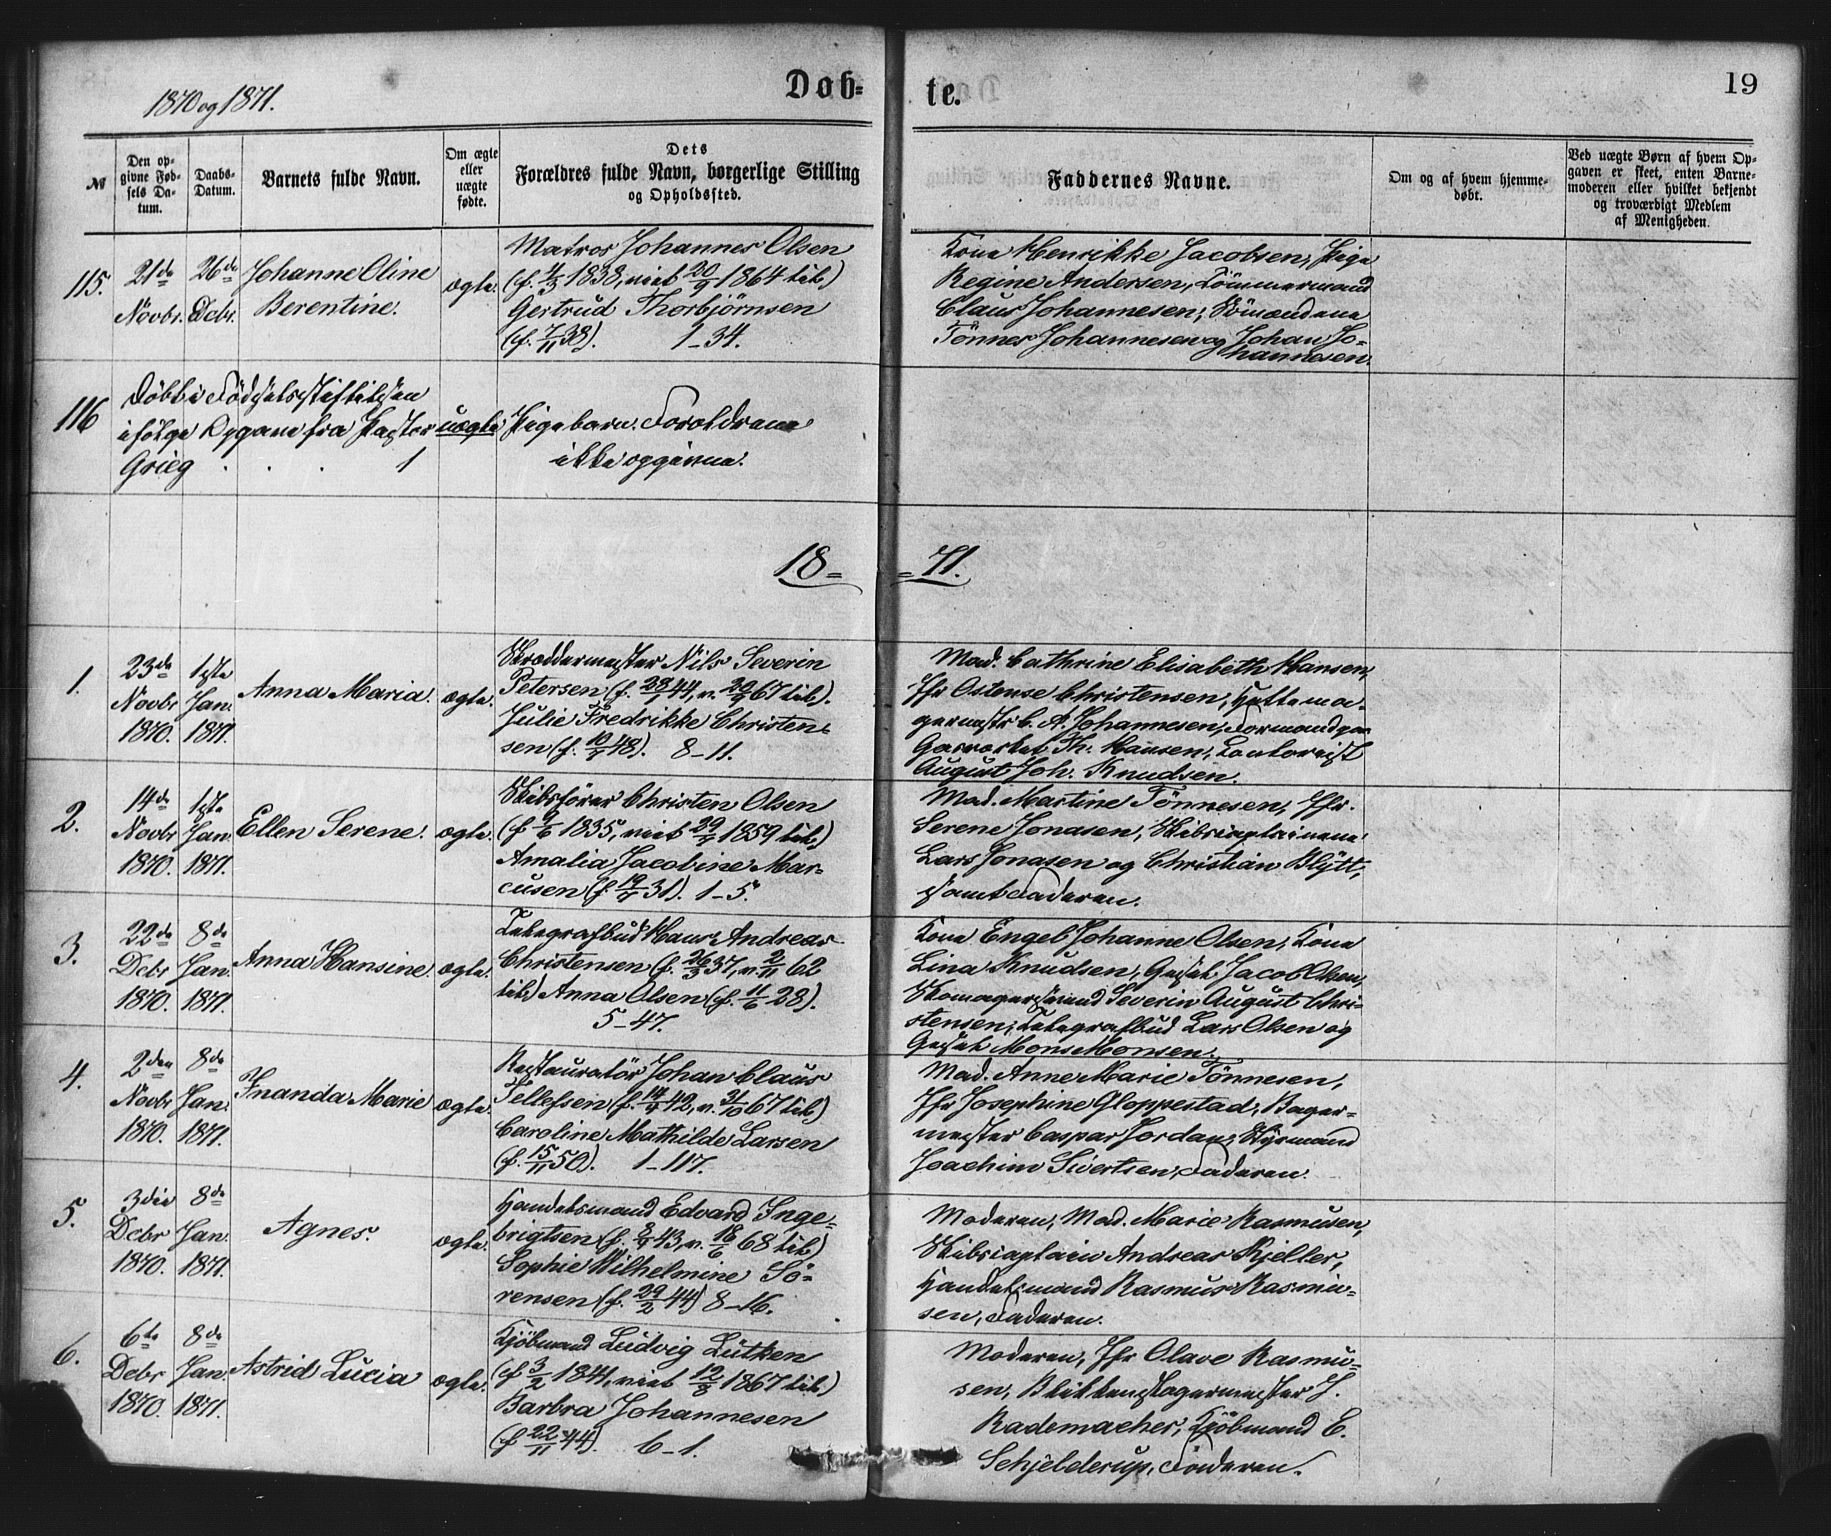 1870 og 1871.
Døb= te.
19
№
Den op-
givne Fød-
sels Da-
tum.
Daabs-
Datum.
Barnets fulde Navn.
Om ægte
eller
uægte
fødte.
Dets
Forældres fulde Navn, borgerlige Stilling
og Opholdssted.
Faddernes Navne.
Om og af hvem hjemme-
døbt.
Ved uægte Børn af hvem Op-
gaven er skeet, enten Barne-
moderen eller hvilket bekjendt
og troværdigt Medlem
af Menigheden.
115.
21de
Novbr.
26de
Dcbr.
Johanne Oline
Berentine.
ægte.
Matros Johannes Olsen
(f. 4/3 1838, viet 20/9 1864 til)
Gertrud Thorbjørnsen
(f. 7/11 38). 1-34.
Kone Henrikke Jacobsen, Pige
Regine Andersen, Tömmermand
Claus Johannesen, Sömændene
Tönnes Johannesen og Johan Jo-
hannesen.
116
Döbt i Födselsstiftelsen
ifölge Opgave fra Pastor
Grieg . . . 1
uægte
Pigebarn. Forældrene
ikke opgivne.
18= =71.
1.
23de
Novbr
1870.
1ste
Jan.
1871.
Anna Maria.
ægte.
Skræddermester Nils Severin
Petersen (f. 28/9 44, v. 20/9 67 til).
Julie Fredrikke Christen-
sen (f. 10/9 48). 8-11.
Mad. Cathrine Elisabeth Hansen,
Jfr Ostense Christensen, Hattema-
germestr C. A. Johannesen, Formand paa
Gasværket Th. Hansen, Contorist
August Joh. Knudsen.
2.
14de
Novbr
1870.
1ste
Jan.
1871.
Ellen Serene.
ægte.
Skibsförer Christen Olsen
(f 9/6 1835, viet 29/9 1859 til)
Amalia Jacobine Mar-
cusen (f. 19/9 31). 1-5.
Mad. Martine Tönnesen, Jfr.
Serene Jonasen, Skibscaptainene
Lars Jonasen og Christian Blytt,
samt Faderen.
3.
22de
Dcbr
1870.
8de
Jan.
1871.
Anna Hansine
ægte.
Telegrafbud Hans Andreas
Christensen (f. 26/3 37, v. 2/11 62
til) Anna Olsen (f. 11/6 28).
5-47.
Kone Engel Johanne Olsen, Kone
Lina Knudsen, Gesel Jacob Olsen,
Skomagersvend Severin August Chri-
stensen, Telegrafbud Lars Olsen og
Gesel Mons Monsen.
4.
2den
Novbr
1870.
8de
Jan.
1871.
Inanda Marie
ægte.
Restauratör Johan Claus
Tellefsen (f. 14/4 42, v. 31/10 67 til)
Caroline Mathilde Larsen
(f. 15/11 50). 1-117.
Mad. Anne Marie Tönnesen,
Jfr Josephine Gloppestad, Bager-
mester Caspar Jordan, Styrmand
Joachim Sivertsen, Faderen.
5.
3die
Dcbr
1870.
8de
Jan.
1871.
Agnes.
ægte.
Handelsmand Edvard Inge-
brigtsen (f. 8/9 43, v. 18/6 68 til)
Sophie Wilhelmine Sö-
rensen (f. 29/2 44) 8-16.
Moderen, Mad. Marie Rasmusen,
Skibscaptain Andreas Kjeller,
Handelsmand Rasmus Rasmu-
sen, Faderen.
6.
6te
Dcbr
1870.
8de
Jan.
1871.
Astrid Lucia
ægte.
Kjöbmand Ludvig Lütken
(f 3/2 1841, viet 12/8 1867 til)
Barbra Johannesen
(f 22/11 44). 6-1.
Moderen, Jfr Olave Rasmu-
sen, Blikkenslagermester J.
Rademacher, Kjöbmand E.
Schjelderup, Faderen.